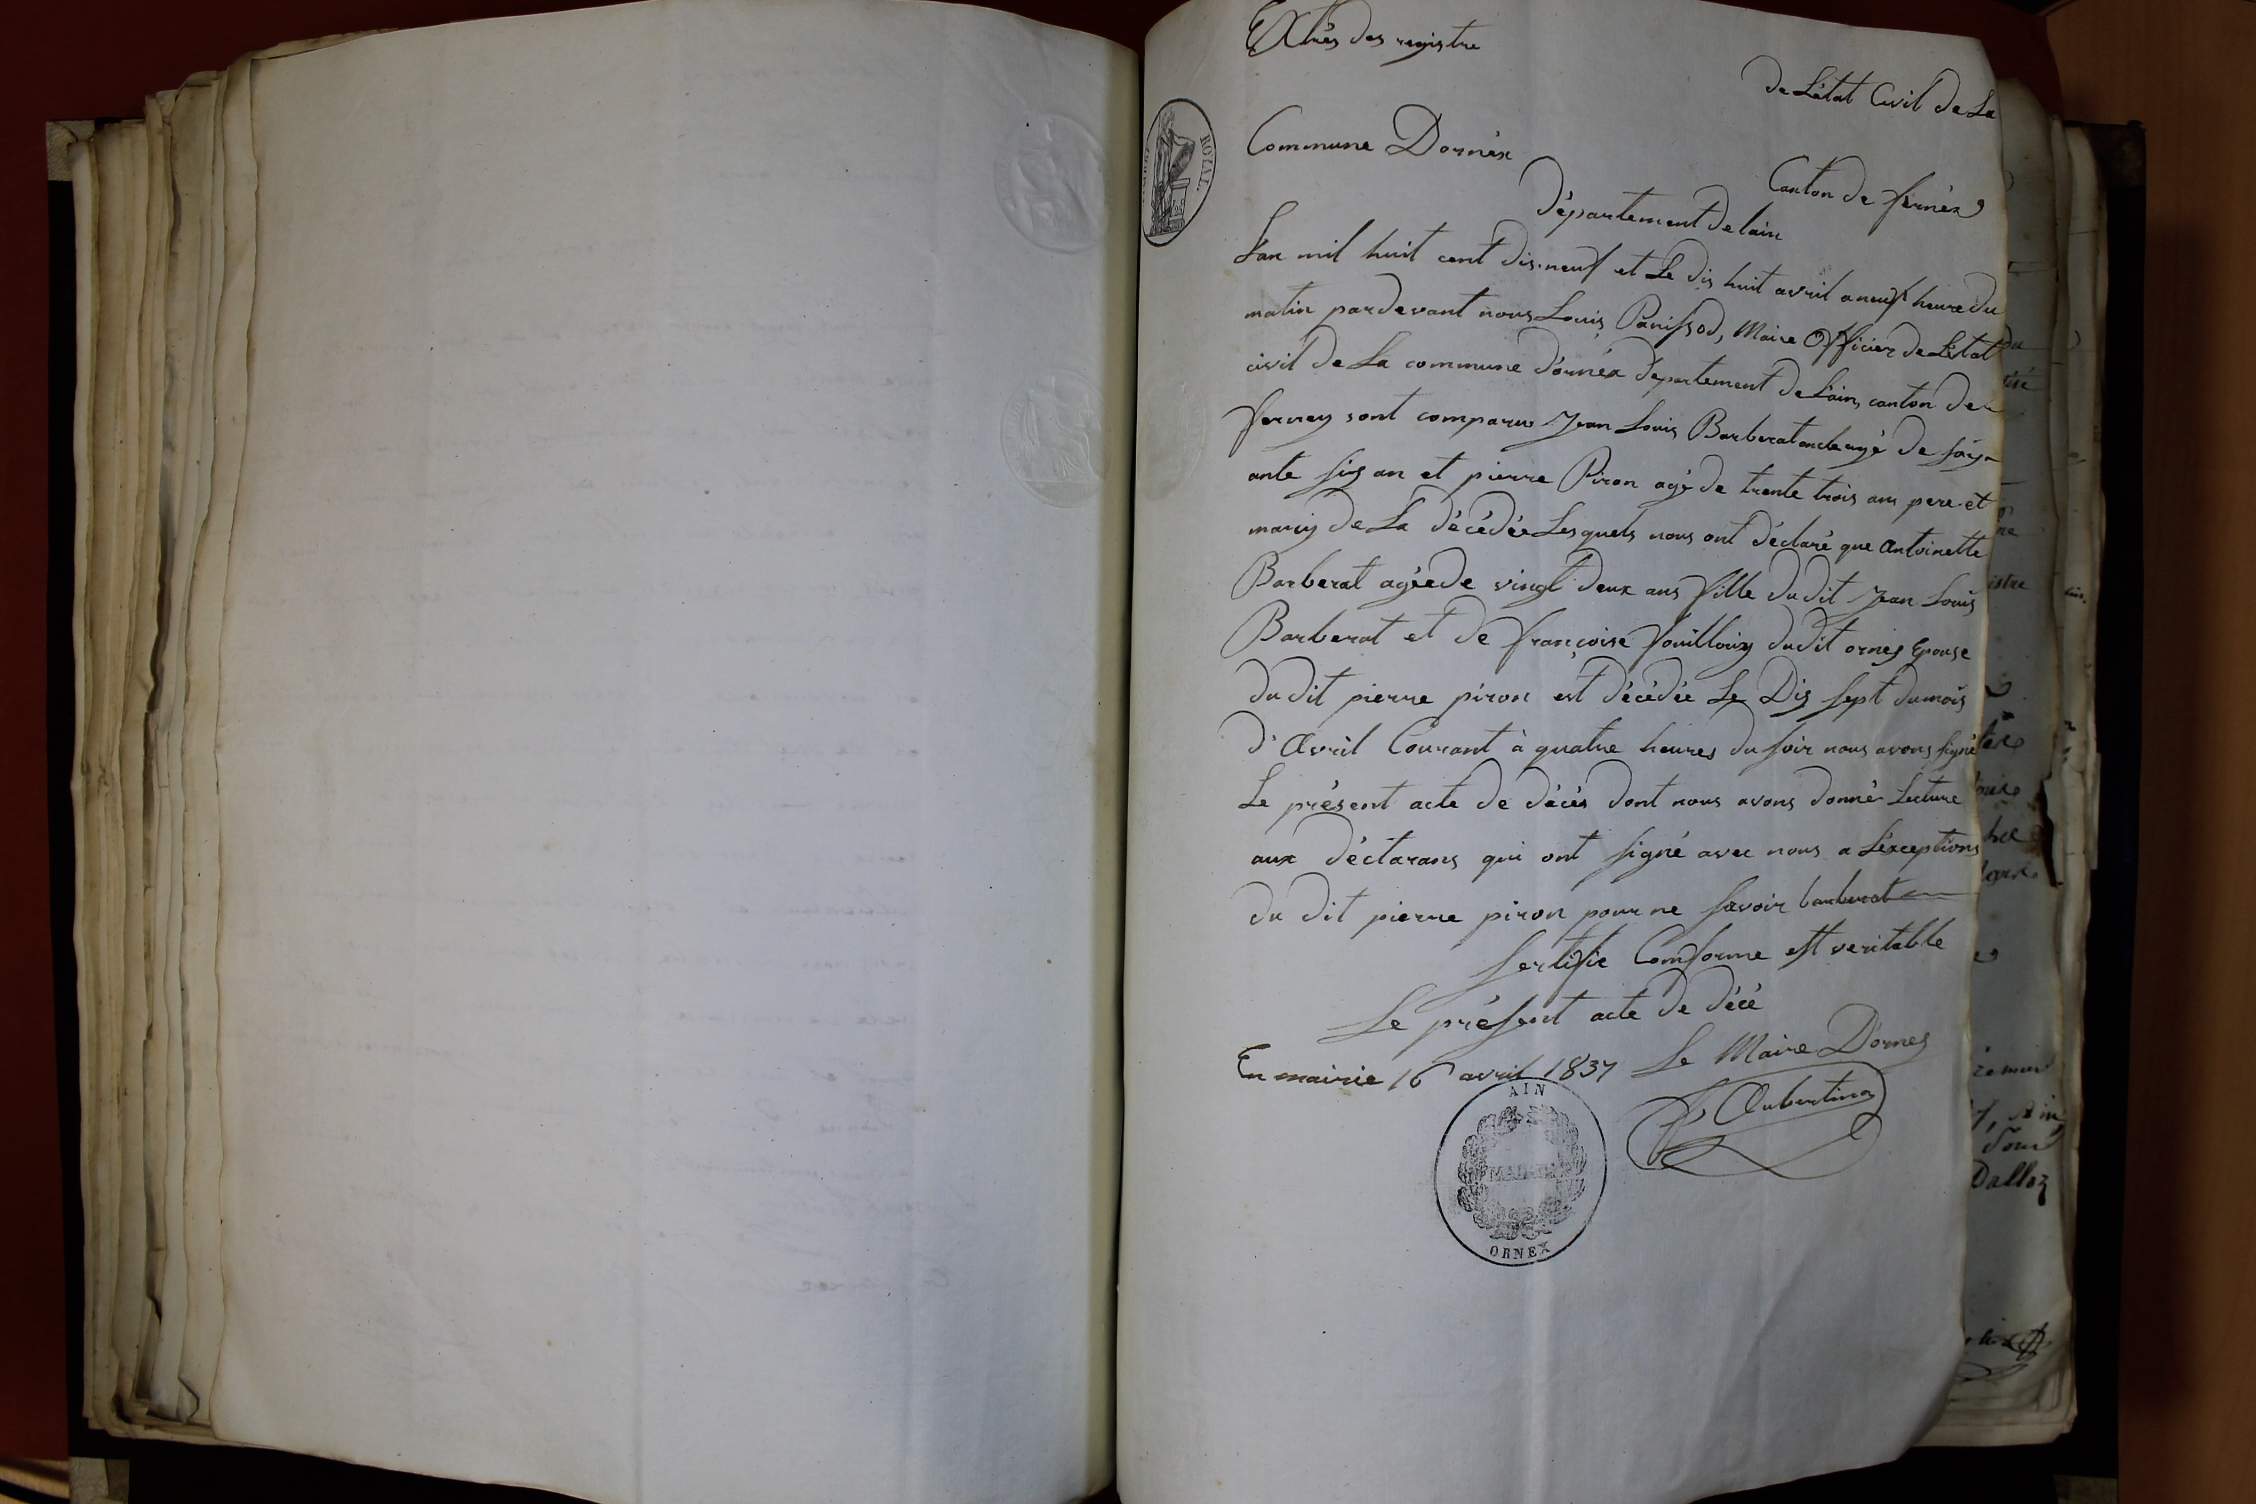 Extrés des registre
de L'état Civil de La
Commune Dornéx
Canton de fernéx
Département de lain
L'an mil huit cent dis-neuf et Le dis huit avril a neuf heure du
matin pardevant nous Louis Panissod, Maire Officier de L'état
civil de La commune d'ornéx département de L'ain, canton de
ferney sont comparu Jean Louis Barberat ancle agé de soix-
ante six an et pierre Piron agé de trente trois ans pere et
mariy de La décédée Lesquels nous ont déclaré que Antoinette
Barberat agée de vingt deux ans fille du dit Jean Louis
Barberat et de françoise fouilloux du dit ornex Epouse
du dit pierre piron est décédée Le Dis sept du mois
d'Avril Courant à quatre heures du soir nous avons signé
Le présent acte de décés dont nous avons donné Lecture
aux déctarans qui ont signé avec nous a L'éxceptions
du dit pierre piron pour ne savoir barberat
Sertifie Comforme est veritable
Le présent acte de décé
En mairie 16 avril 1837 Le Maire D'ornex
Aubertin
ROYAL
AIN
MAIRIE
ORNEX
Dalloz